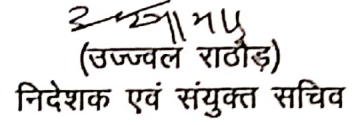 (उज्ज्वल राठौड़)
निदेशक एवं संयुक्त सचिव